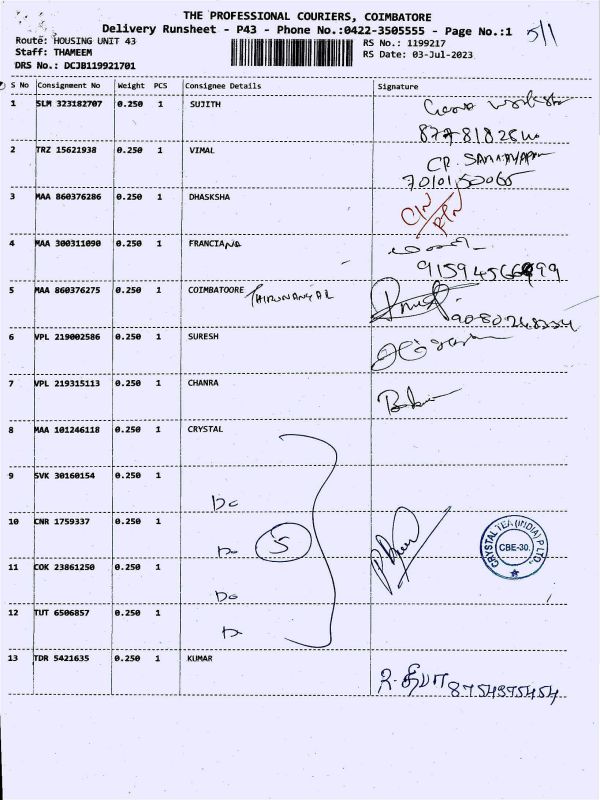 THE PROFESSIONAL COURIERS, COIMBATORE
Delivery Runsheet - P43 - Phone No.:0422-3505555 - Page No.:1
5/1
Route: HOUSING UNIT 43
RS No.: 1199217
Staff: THAMEEM
RS Date: 03-Jul-2023
DRS No.: DCJB119921701
S No Consignment No Weight PCS Consignee Details Signature
1 SLM 323182707 0.250 1 SUJITH
2 TRZ 15621938 0.250 1 VIMAL
3 MAA 860376286 0.250 1 DHASKSHA
4 MAA 300311090 0.250 1 FRANCIANA
5 MAA 860376275 0.250 1 COIMBATOORE
6 VPL 219002586 0.250 1 SURESH
7 VPL 219315113 0.250 1 CHANRA
8 MAA 101246118 0.250 1 CRYSTAL
9 SVK 30160154 0.250 1
Do
10 CNR 1759337 0.250 1
Do 5
CRYSTAL TEA (INDIA) P LTD.
CBE-30.
11 COK 23861250 0.250 1
Do
12 TUT 6506857 0.250 1
Do
13 TDR 5421635 0.250 1 KUMAR
8754975454